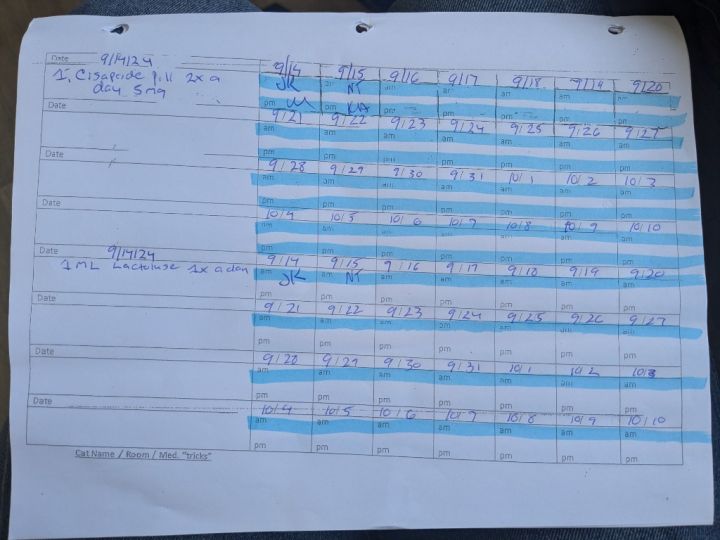 Date 9/14/24 9/14 9/15 9/16 9/17 9/18 9/19 9/20
1, Cisapride pill 2x a JK am NT am am am am am
day 5mg pm pm pm pm pm pm pm
Date 9/21 9/22 9/23 9/24 9/25 9/26 9/27
am am am am am am am
pm pm pm pm pm pm pm
Date 9/28 9/29 9/30 9/31 10/1 10/2 10/3
am am am am am am am
pm pm pm pm pm pm pm
Date 10/4 10/5 10/6 10/7 10/8 10/9 10/10
am am am am am am am
pm pm pm pm pm pm pm
Date 9/14/24 9/14 9/15 9/16 9/17 9/18 9/19 9/20
1 ML Lactoluse 1x a day am JK am NT am am am am am
pm pm pm pm pm pm pm
Date 9/21 9/22 9/23 9/24 9/25 9/26 9/27
am am am am am am am
pm pm pm pm pm pm pm
Date 9/28 9/29 9/30 9/31 10/1 10/2 10/3
am am am am am am am
pm pm pm pm pm pm pm
Date 10/4 10/5 10/6 10/7 10/8 10/9 10/10
am am am am am am am
pm pm pm pm pm pm pm
Cat Name / Room / Med. "tricks"